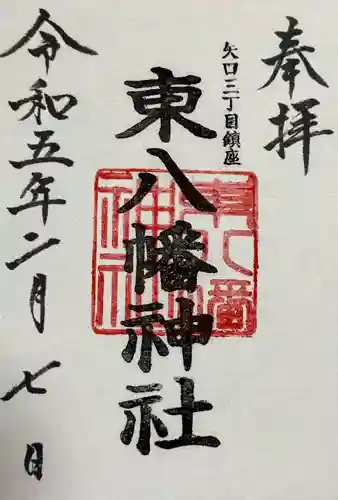 奉拝
矢口三丁目鎮座
東八幡神社
令和五年二月七日
東八幡神社